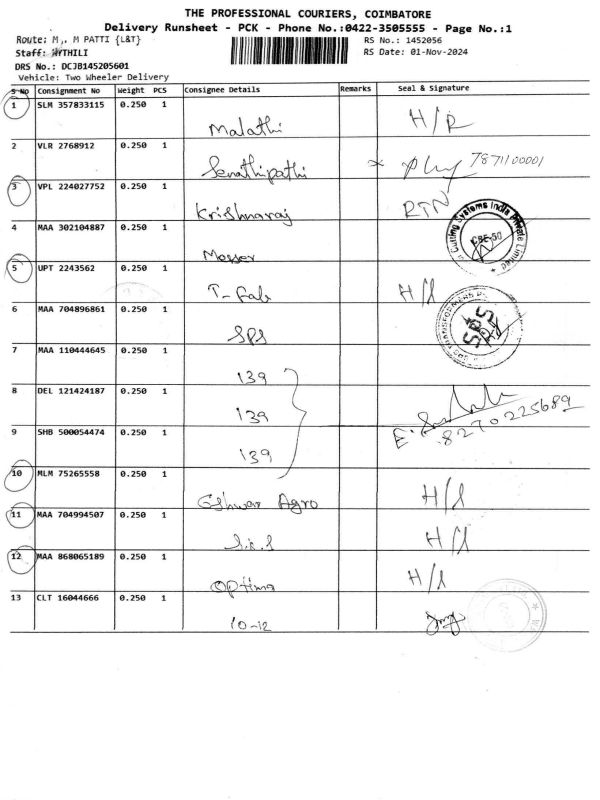 THE PROFESSIONAL COURIERS, COIMBATORE
Delivery Runsheet - PCK - Phone No.:0422-3505555 - Page No.:1
Route: M,. M PATTI {L&T}
RS No.: 1452056
Staff: THILI
RS Date: 01-Nov-2024
DRS No.: DCJB145205601
Vehicle: Two Wheeler Delivery
S No Consignment No Weight PCS Consignee Details Remarks Seal & Signature
1 SLM 357833115 0.250 1
Malathi H/R
2 VLR 2768912 0.250 1
Senathipathi x 7871100001
3 VPL 224027752 0.250 1
Krishnaraj RTN
4 MAA 302104887 0.250 1
Messer
Cutting Systems India Private Limited
CBE-50
5 UPT 2243562 0.250 1
T-Fab H/l
6 MAA 704896861 0.250 1
SPS
TRANSFORMERS
SBS
7 MAA 110444645 0.250 1
139
8 DEL 121424187 0.250 1
139
8270225689
9 SHB 500054474 0.250 1
139
10 MLM 75265558 0.250 1
Eshwar Agro H/l
11 MAA 704994507 0.250 1
S.R.S H/l
12 MAA 868065189 0.250 1
Optima H/l
13 CLT 16044666 0.250 1
10-12